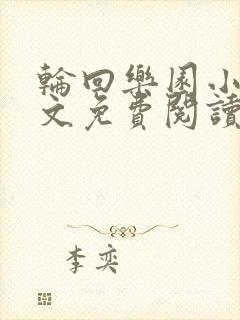 輪回樂園小
文免費閱讀
李奕